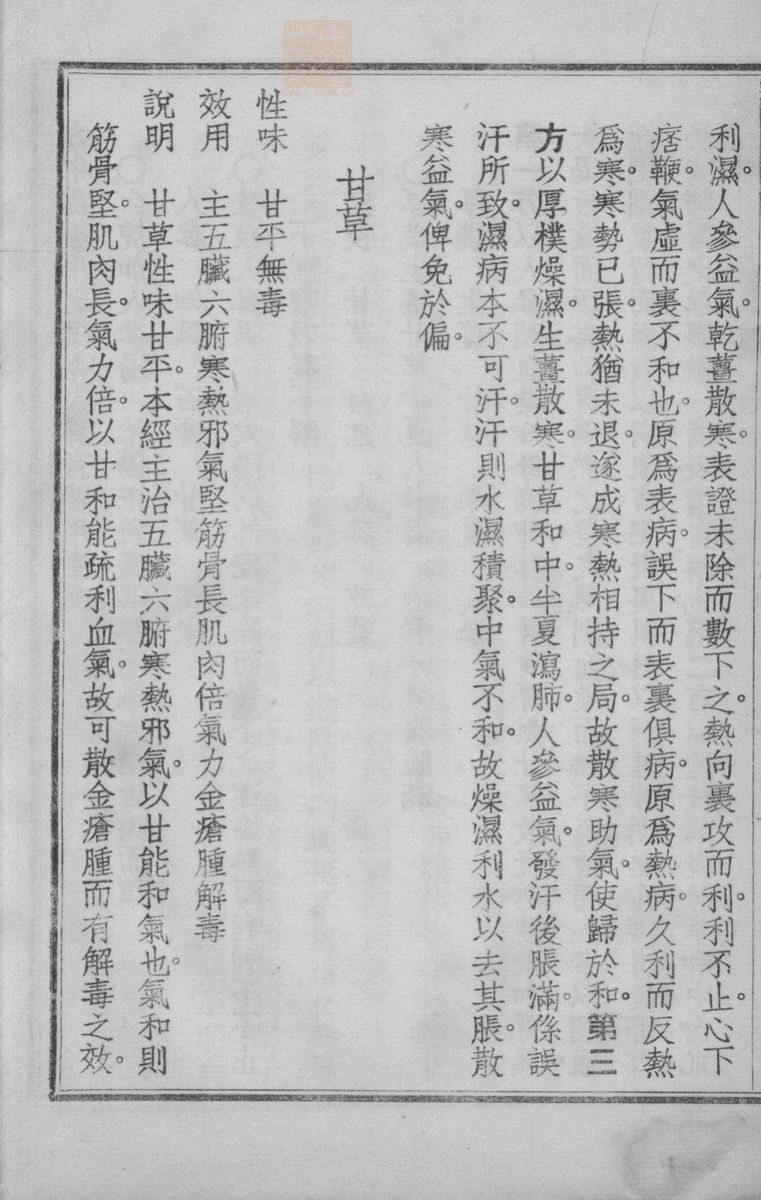 利濕。人參益氣。乾薑散寒。表證未除而數下之。熱向裏攻而利。利不止。心下
痞鞕。氣虛而裏不和也。原爲表病。誤下而表裏俱病。原爲熱病。久利而反熱
爲寒。寒勢已張。熱猶未退。遂成寒熱相持之局。故散寒助氣。使歸於和。第三
方以厚樸燥濕。生薑散寒。甘草和中。半夏瀉肺。人參益氣。發汗後脹滿。係誤
汗所致。濕病本不可汗。汗則水濕積聚。中氣不和。故燥濕利水以去其脹。散
寒益氣。俾免於偏。
甘草
性味　甘平無毒
效用　主五臟六腑寒熱邪氣堅筋骨長肌肉倍氣力金瘡腫解毒
說明　甘草性味甘平。本經主治五臟六腑寒熱邪氣。以甘能和氣也。氣和則
筋骨堅。肌肉長。氣力倍。以甘和能疏利血氣。故可散金瘡腫而有解毒之效。